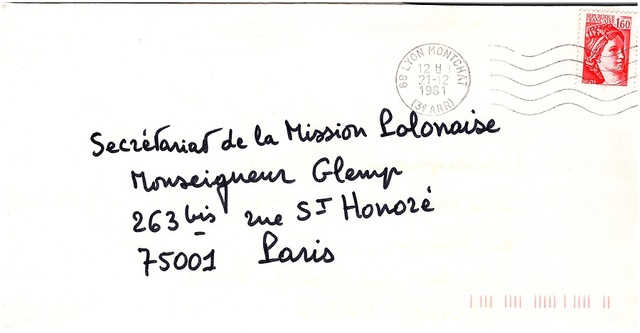 REPUBLIQUE FRANCAISE
1,60
69 LYON MONTCHAT
12 H
21-12
1981
(3e ARR)
Secrétariat de la Mission Polonaise
Monseigneur Glemp
263 bis rue St Honoré
75001 Paris